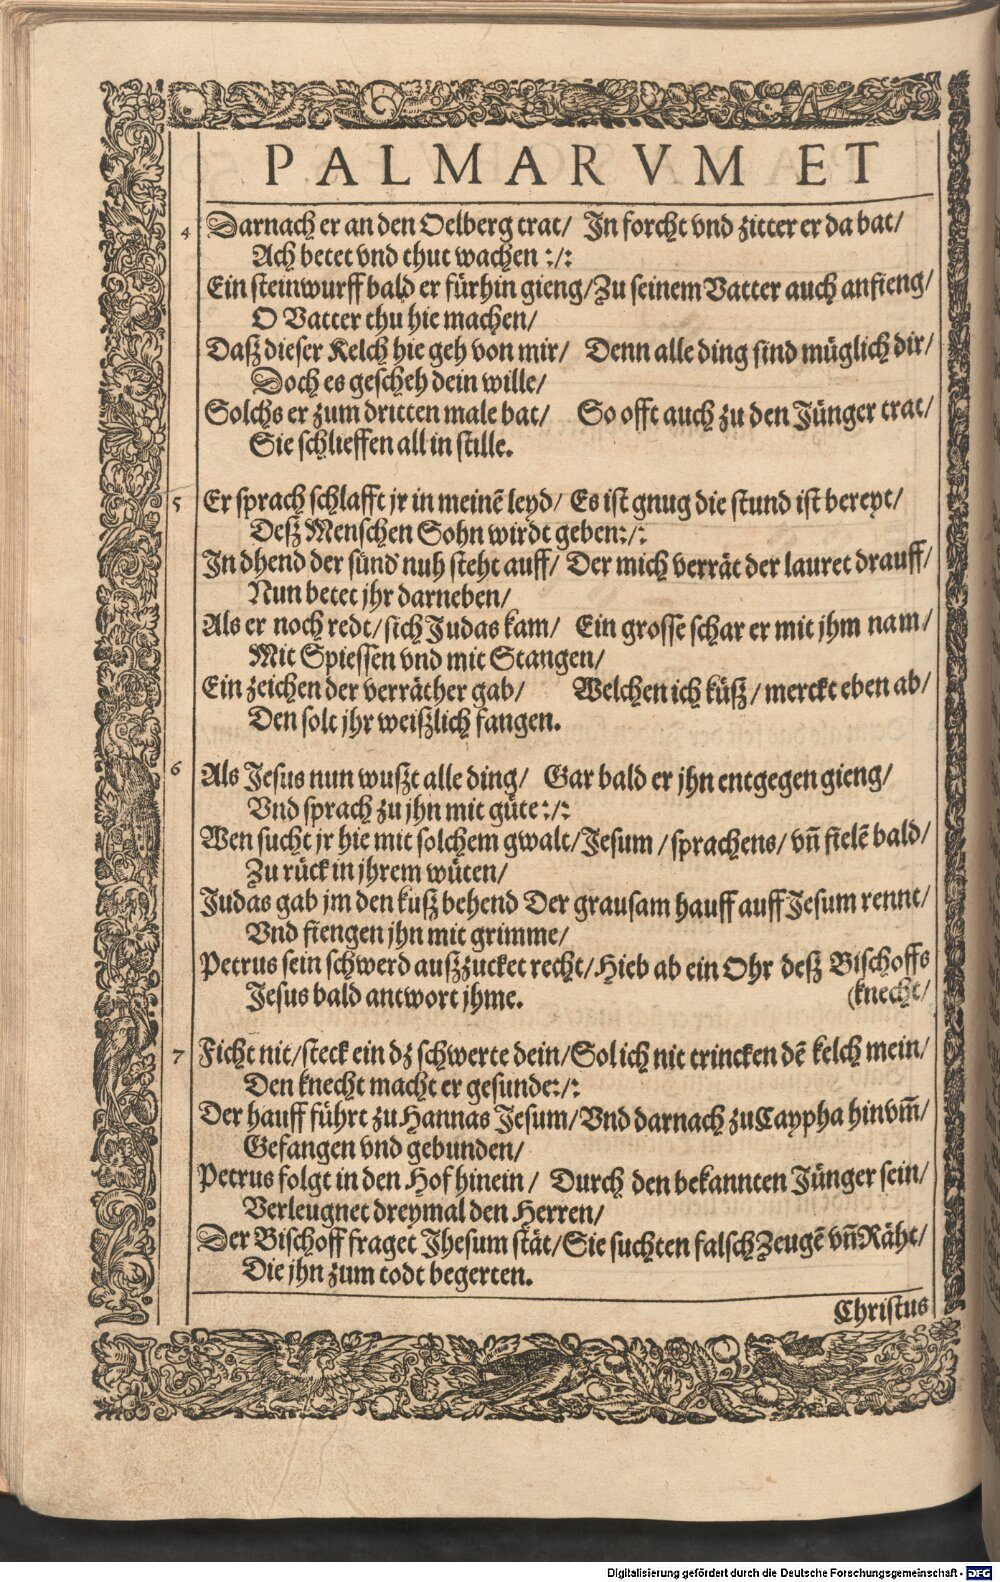 PALMARVM ET
4 Darnach er an den Oelberg trat/ In forcht vnd zitter er da bat/
Ach betet vnd thut wachen :/:
Ein steinwurff bald er fürhin gieng/Zu seinem Vatter auch anfieng/
O Vatter thu hie machen/
Daß dieser Kelch hie geh von mir/ Denn alle ding sind müglich dir/
Doch es gescheh dein wille/
Solchs er zum dritten male bat/ So offt auch zu den Jünger trat/
Sie schlieffen all in stille.
5 Er sprach schlafft jr in meinē leyd/ Es ist gnug die stund ist bereyt/
Deß Menschen Sohn wirdt geben:/:
In dhend der sünd' nuh steht auff/ Der mich verrät der lauret drauff/
Nun betet jhr darneben/
Als er noch redt/sich Judas kam/ Ein grosse schar er mit jhm nam/
Mit Spiessen vnd mit Stangen/
Ein zeichen der verräther gab/ Welchen ich küß/ merckt eben ab/
Den solt jhr weißlich fangen.
6 Als Jesus nun wußt alle ding/ Gar bald er jhn entgegen gieng/
Vnd sprach zu jhn mit güte:/:
Wen sucht jr hie mit solchem gwalt/Jesum/sprachens/ vñ fielē bald/
Zu rück in jhrem wüten/
Judas gab jm den kuß behend Der grausam hauff auff Jesum rennt/
Vnd fiengen jhn mit grimme/
Petrus sein schwerd außzucket recht/Hieb ab ein Ohr deß Bischoffs
Jesus bald antwort jhme. (knecht/
7 Ficht nit/steck ein dz schwerte dein/Sol ich nit trincken dē kelch mein/
Den knecht macht er gesunde:/:
Der hauff führt zu Hannas Jesum/Vnd darnach zu Caypha hinvm̄/
Gefangen vnd gebunden/
Petrus folgt in den Hof hinein/ Durch den bekannten Jünger sein/
Verleugnet dreymal den Herren/
Der Bischoff fraget Jhesum stät/Sie suchten falsch Zeugē vñ Räht/
Die jhn zum todt begerten.
Christus
Digitalisierung gefördert durch die Deutsche Forschungsgemeinschaft - DFG